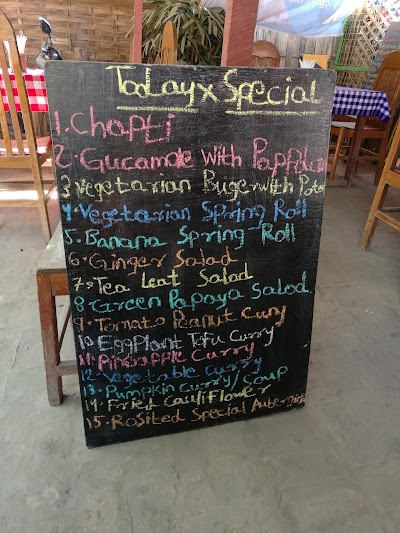 Today x Special
1. Chapti
2. Gucamole with Pappadam
3 Vegetarian Buger with Potato
4. Vegetarian Spring Roll
5. Banana Spring-Roll
6. Ginger Salad
7. Tea Leat Salad
8. Green Papaya Salad
9. Tomato Peanut Curry
10 EggPlant Tofu Curry
11. Pineapple Curry
12. Vegetable Curry
13. Pumpkin Curry/Soup
14. Fried Cauliflower
15. Rosited Special